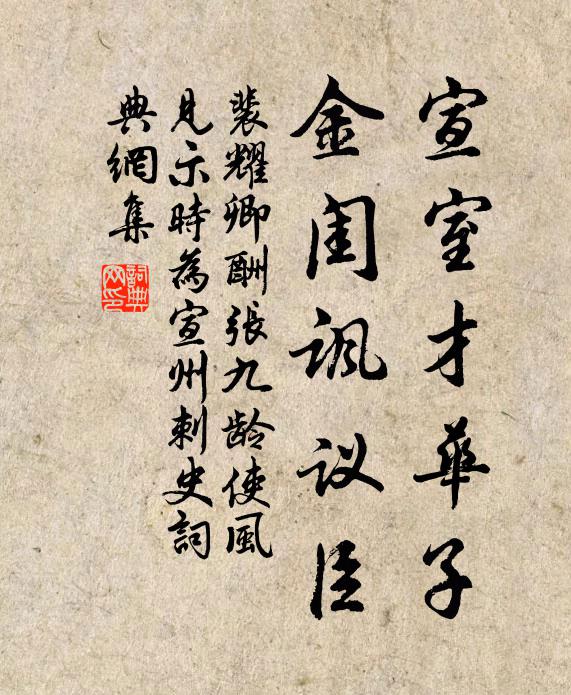 宣室才華子
金閨諷议臣
裴耀卿酬張九龄使風
見示時為宣州刺史詞
典網集
詞典
网印